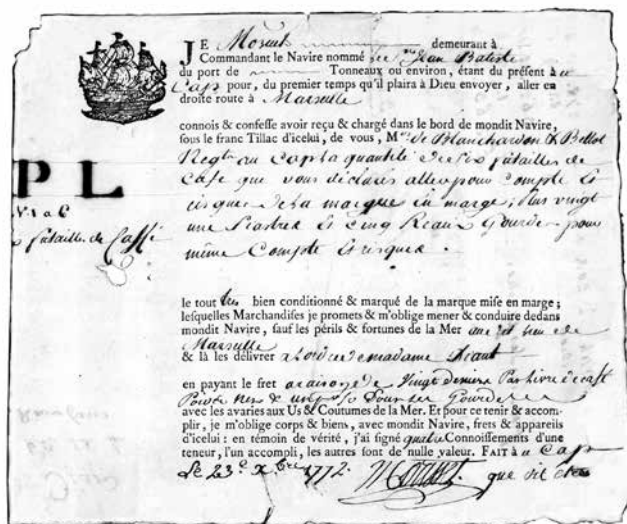 JE Moreut demeurant à
Commandant le Navire nommé Le Jean Batiste
du port de Tonneaux ou environ, étant du présent au
Cap pour, du premier temps qu'il plaira à Dieu envoyer, aller en
droite route à Marseille
connois & confesse avoir reçu & chargé dans le bord de mondit Navire,
sous le franc Tillac d'icelui, de vous, M.rs de Blanchardon & Bellot
Neg.ts au Cap la quantité de six futailles de
Café que vous déclarés aller pour Compte &
risques de sa marque en marge; plus vingt
une Piastres & Cinq Reaux Gourdes pour
même Compte & risques.
P L
N.º 1 a 6
futailles de Caffé
le tout très bien conditionné & marqué de la marque mise en marge;
lesquelles Marchandises je promets & m'oblige mener & conduire dedans
mondit Navire, sauf les périls & fortunes de la Mer au dit lieu de
Marseille
& là les délivrer a l'ordre de madame
en payant le fret a raison de Vingt deniers Par Livre de Café
Poids net & un pr % Pour les Gourdes
avec les avaries aux Us & Coutumes de la Mer. Et pour ce tenir & accom-
plir, je m'oblige corps & biens, avec mondit Navire, frets & appareils
d'icelui: en témoin de vérité, j'ai signé quatre Connoissements d'une
teneur, l'un accompli, les autres sont de nulle valeur. FAIT au Cap
Le 23e Xbre 1772. que dit être